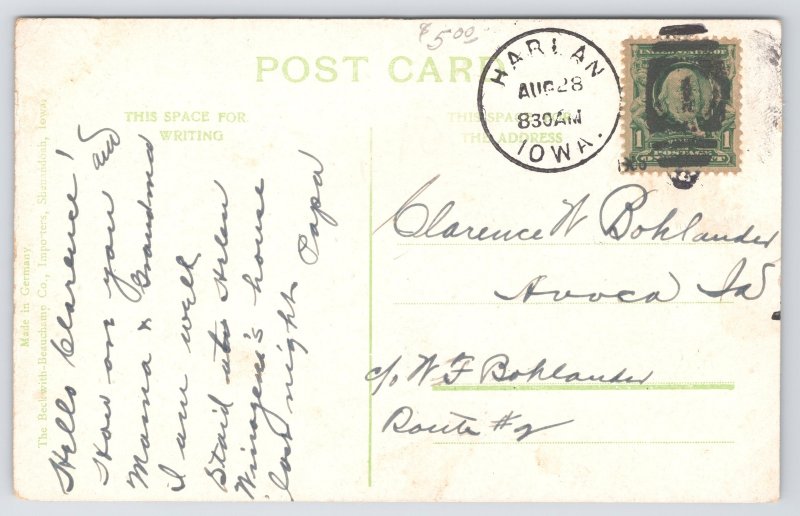 $5.00
POST CARD
THIS SPACE FOR
WRITING
THIS SPACE FOR
THE ADDRESS
HARLAN
AUG 28
830AM
IOWA.
1
POSTAGE
Made in Germany.
The Beckwith-Beauchamp Co., Importers, Shenandoah, Iowa.
Hello Clarence!
How are you and
Mama & Grandma
I am well
Staid at Helen
house
last night. Papa
Clarence W Bohlander
Avoca Ia
c/o W F Bohlander
Route #2